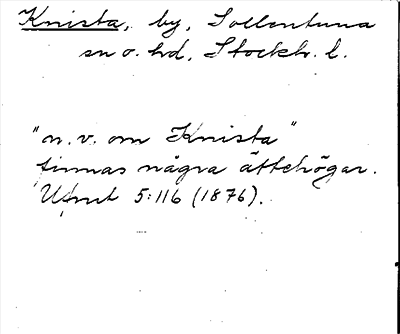 Knista, by, Sollentuna
sn o. hd, Stockh. l.
"n. v. om Knista"
finnas några ättehögar.
Ufmt 5:116 (1876).